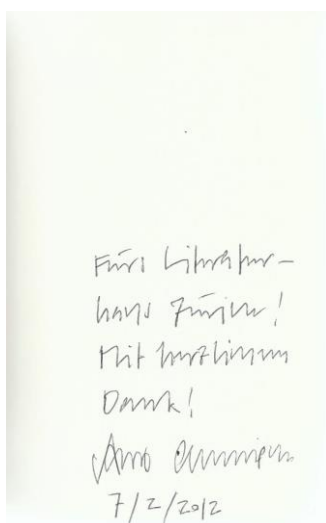 Fürs Literatur-
haus Zürich!
Mit herzlichem
Dank!
Arno
7/2/2012